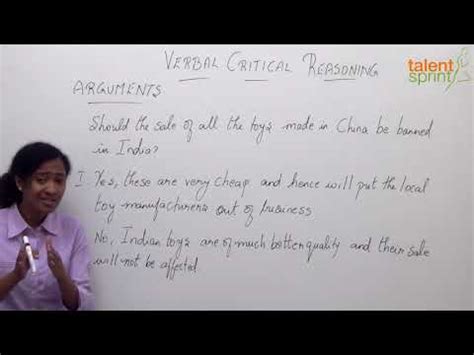 VERBAL CRITICAL REASONING
talent
sprint
ARGUMENTS
Should the sale of all the toys made in China be banned
in India?
I. Yes, these are very cheap and hence will put the local
toy manufacturers out of business
No, Indian toys are of much better quality and their sale
will not be affected